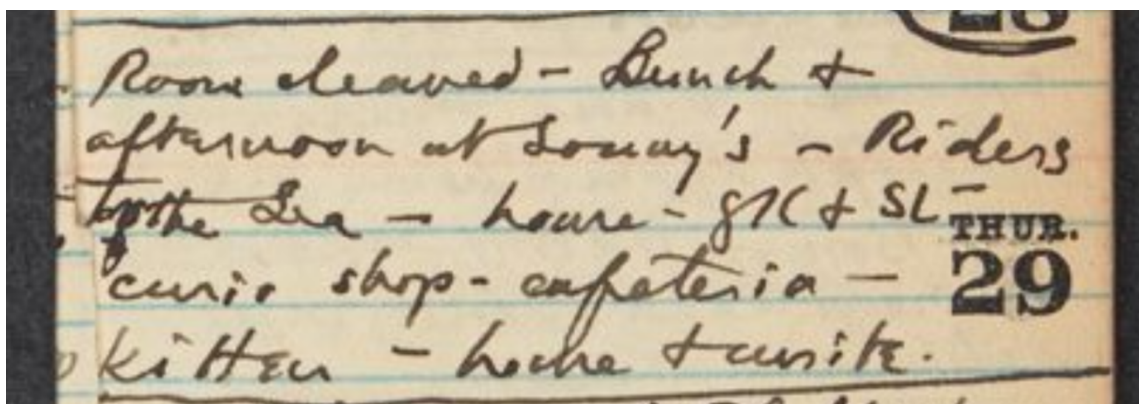 28
Room cleaned – Lunch &
afternoon at Sonny's – Riders
to the Sea – home – GK & SL –
THUR.
29
curio shop – cafeteria –
kitten – home & write.